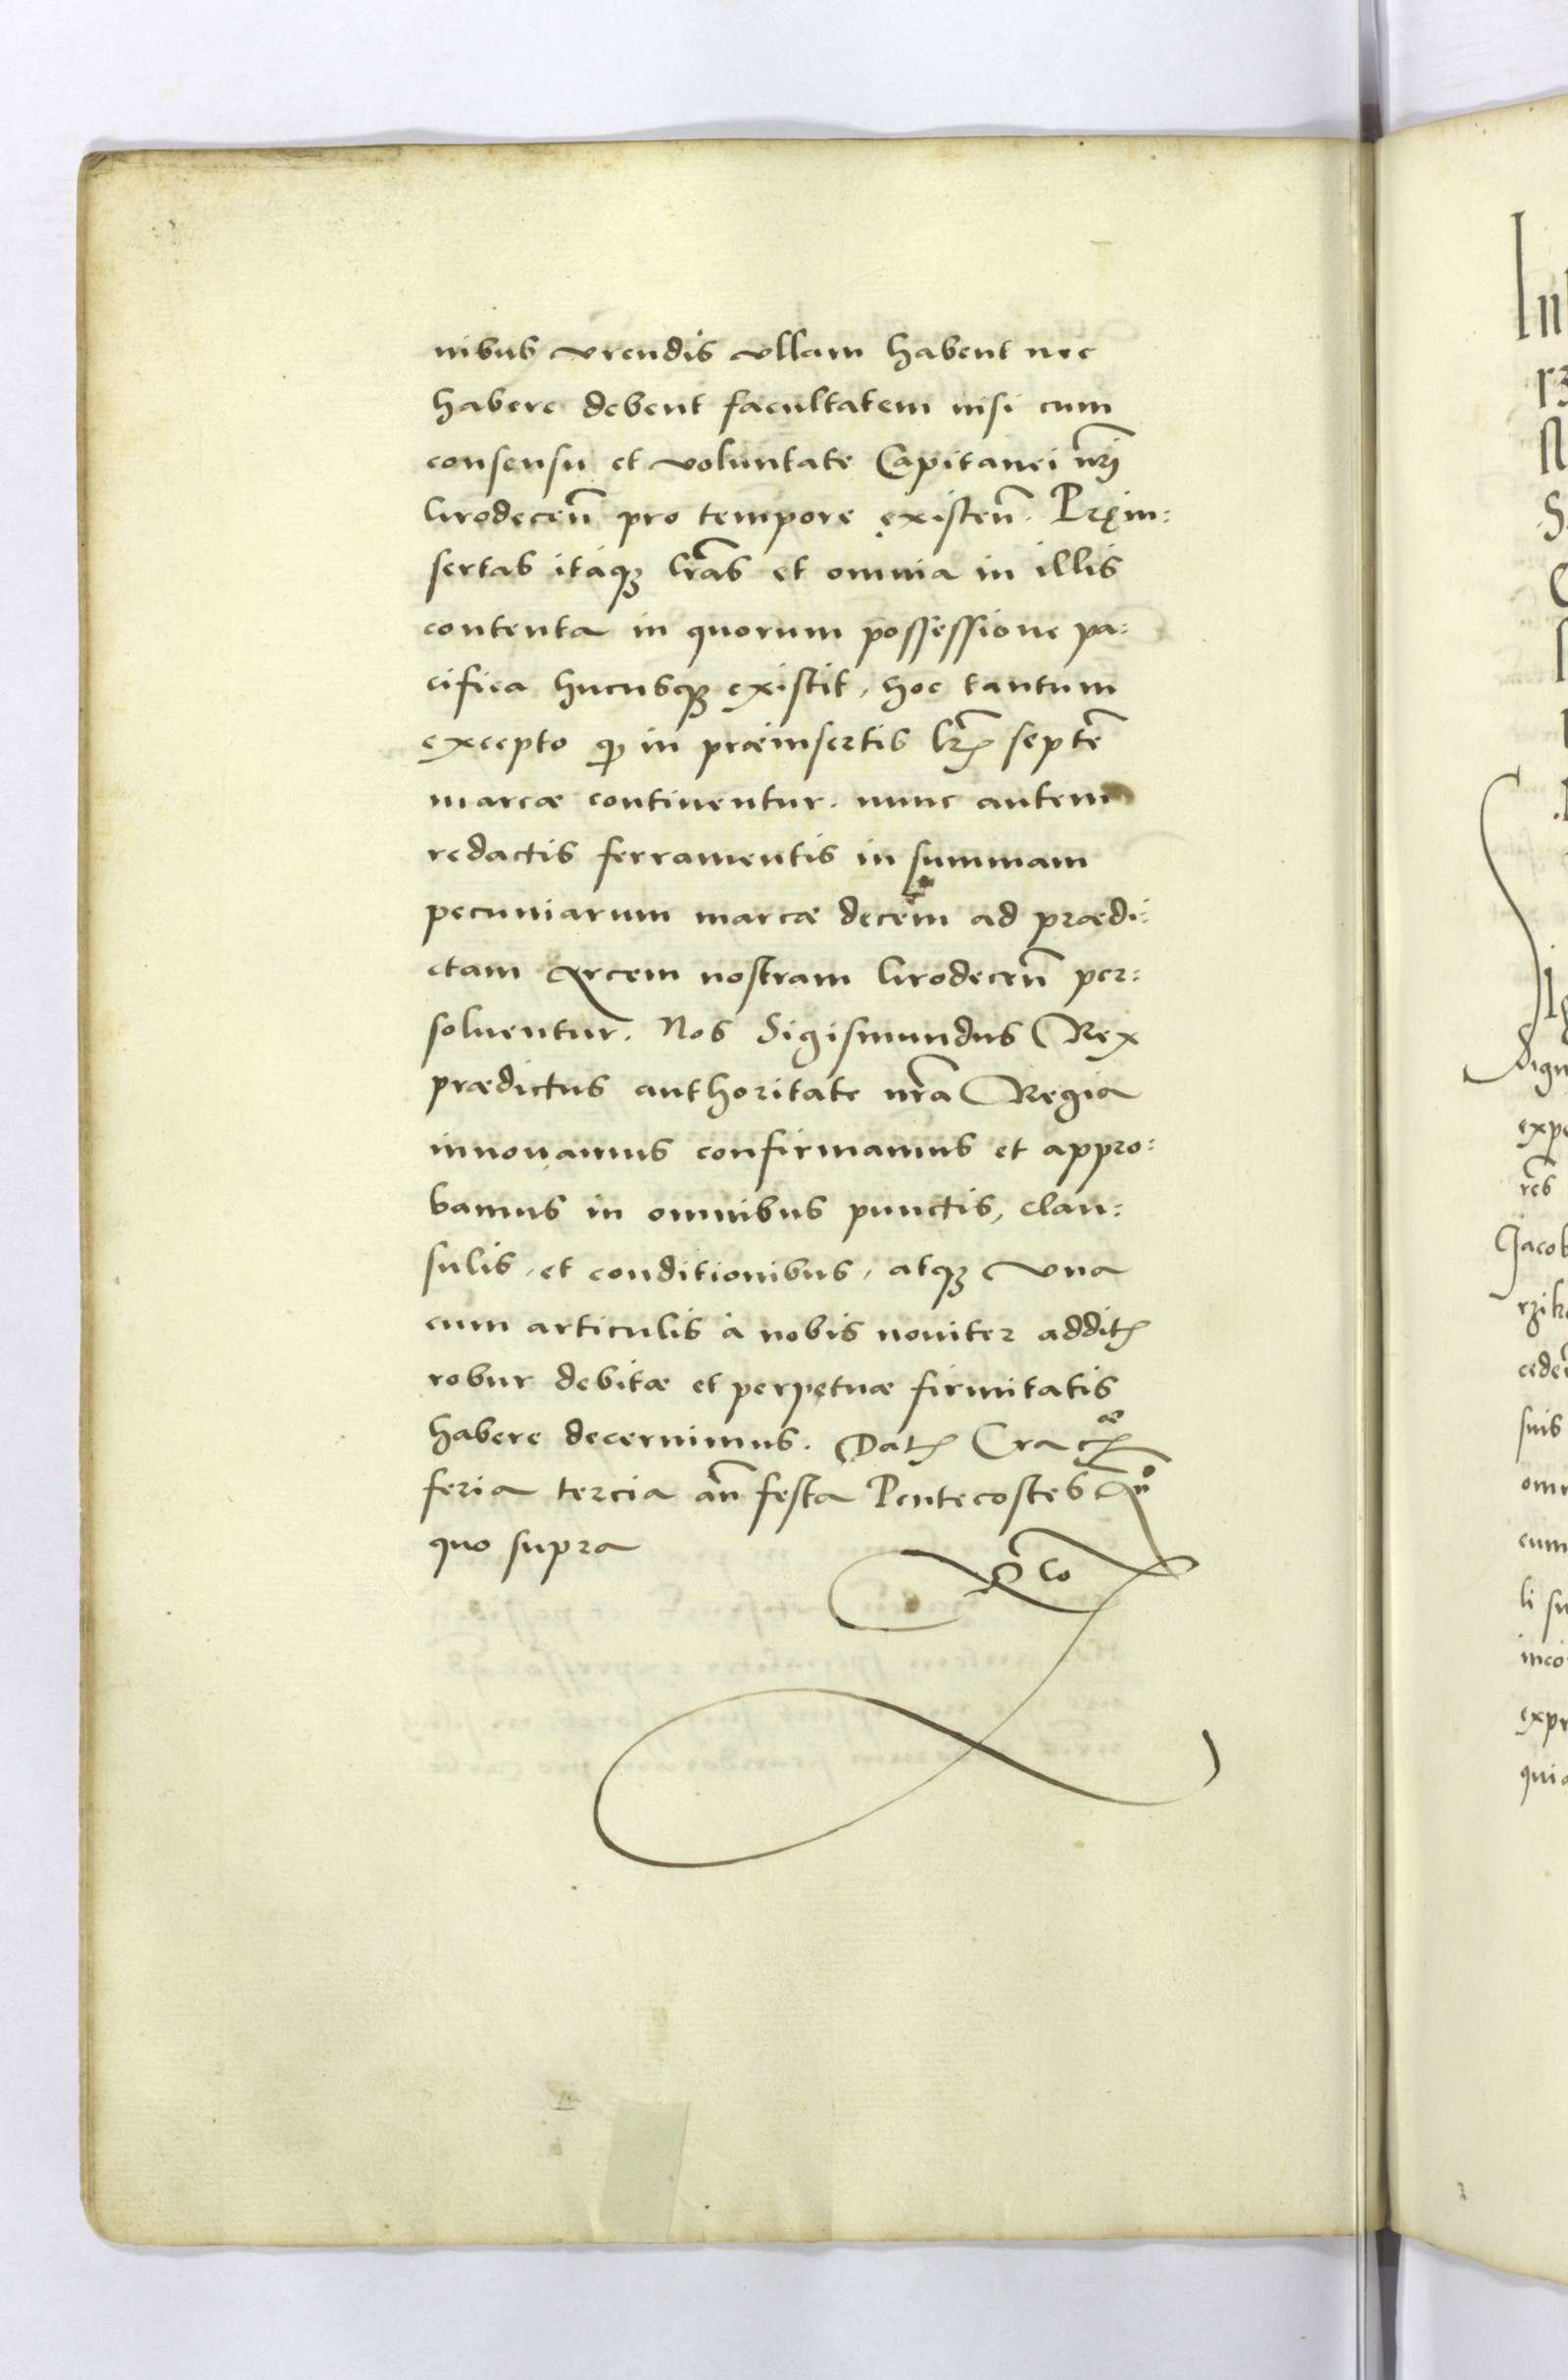 nibus vrendis vllam habent nec
habere debent facultatem nisi cum
consensu et voluntate Capitanei nr̃j
Grodeceñ pro tempore existeñ. Pręin:
sertas itaqꝫ lr̃as et omnia in illis
contenta in quorum possessione pa:
cifica hucusqꝫ existit, hoc tantum
excepto ꝙ in præinsertis lr̃is septẽ
marcæ continentur. nunc autem
redactis ferramentis in summam
pecuniarum marcæ decem ad prædi:
ctam Arcem nostram Grodeceñ per:
soluentur. Nos Sigismundus Rex
prædictus authoritate nr̃a Regia
innouamus confirmamus et appro:
bamus in omnibus punctis, clau:
sulis, et conditionibus, atqꝫ vna
cum articulis à nobis nouiter additꝭ
robur debitæ et perpetuæ firmitatis
habere decernimus. Datꝭ Cracꝭæ
feria tercia añ festa Pentecostes Añº
quo supra
In
rz
S
dign
expe
res
Jacob
rzik
ceden
suis
omn
cum
li su
inco
expr
quia